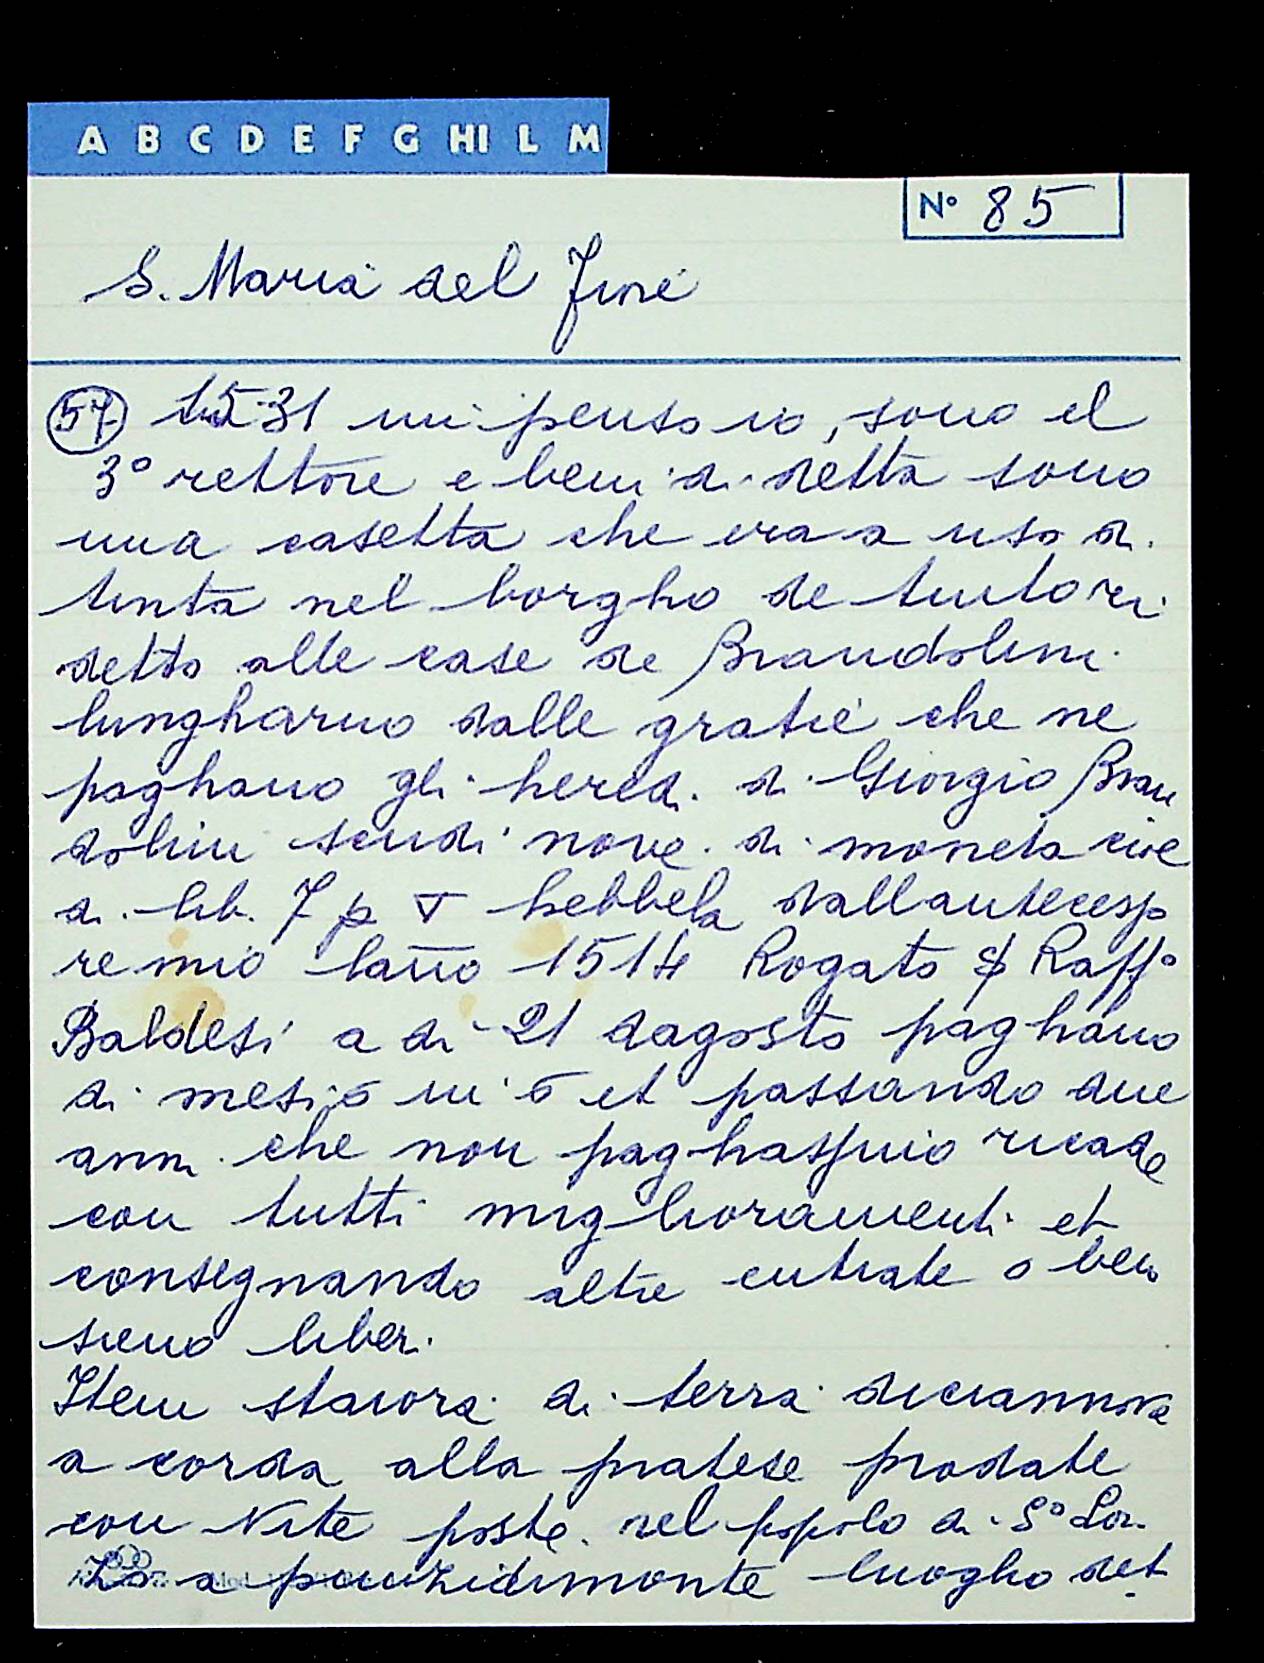 A B C D E F G HI L M
N° 85
S. Maria del Fiore
57 1531 mi penso io, sono el
3° rettore e beni di detta sono
una casetta che era a uso di
tinta nel borgho de tintori
detto alle case de Brandolini
lungharno dalle gratie che ne
paghano gli heredi di Giorgio Bran
dolini scudi nove di moneta cioe
di lib. 7 p ∇ hebbela dallantecesso
re mio lan̄o 1514 Rogato Raff°
Baldesi a di 21 dagosto paghano
di mesi 6 in 6 et passando due
anni che non paghassino ricade
con tutti miglioramenti et
consegnando altre entrate o beni
sieno liberi.
Item staiora di terra diciannove
a corda alla pratese prodate
con Vite poste nel popolo di S° Lor.
zo a pounzidimonte luogho det